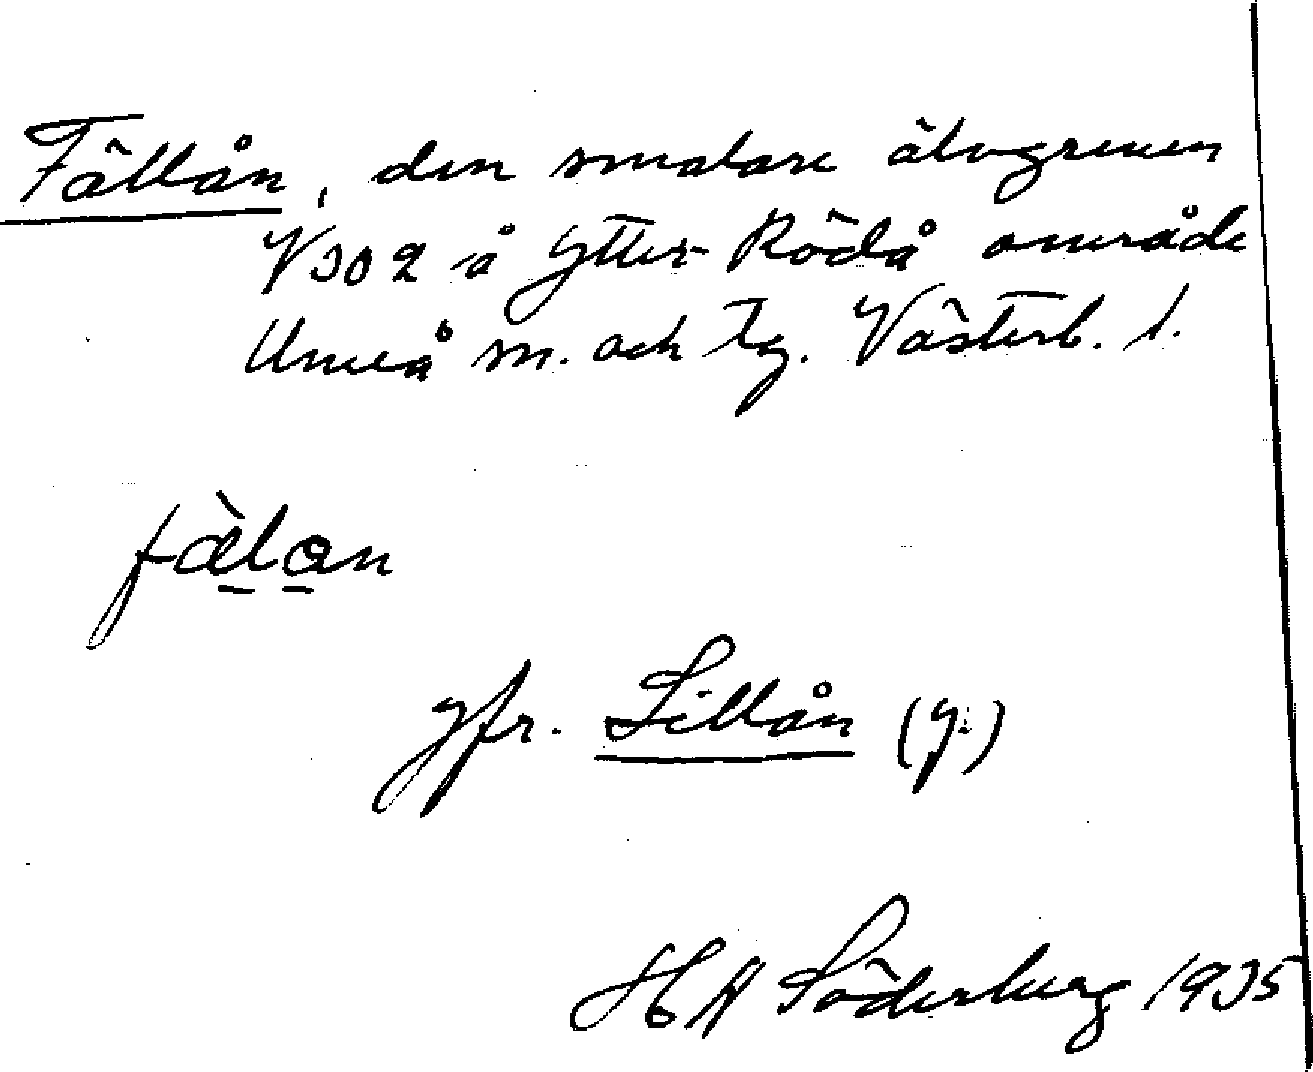 Fällån, den smalare älvgrenen
V302 å Ytter-Rödå område
Umeå sn. och tg. Västerb. l.
fæ̀lan
jfr. Lillån (y.)
HA Söderberg 1935